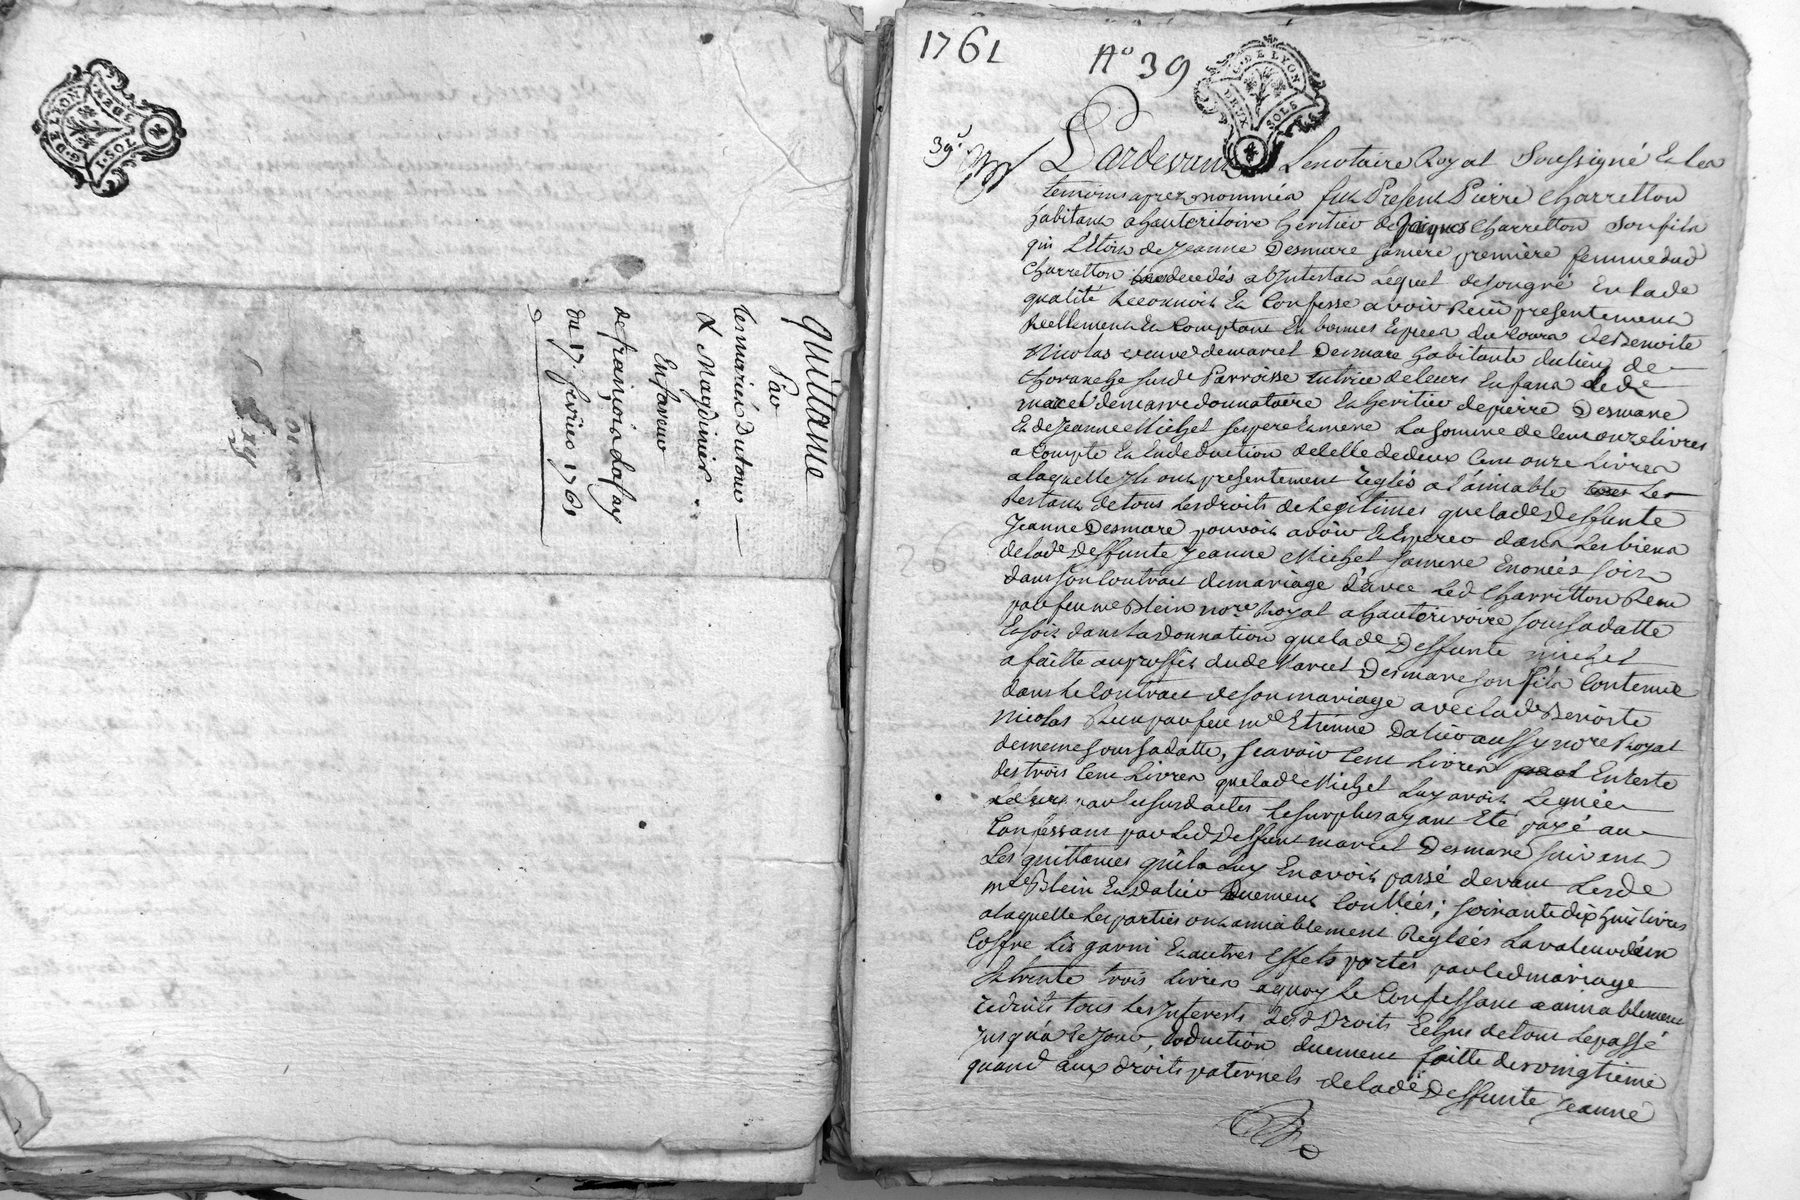 G·DE LYON
1·SOL
DEN
quittance
Par
les mariés Dutour
& Magdinier
En faveur
de françois dafay
du 17. février 1761
1761
N° 39
G·DE LYON
DEUX SOLS
39e
Pardevant Le notaire Royal Soussigné Et les
temoins aprez nommés fut Present Pierre charretton
habitant a hauterivoire heritier de Jaques Charretton Son fils
qui L'etoit de Jeanne Desmare sa mere premiere femme dud
Charretton decedés ab Intestat Lequel de son gré En lade
qualité Reconnoit Et Confesse avoir Reçu presentement
Reellement Et Comptant En bonnes Especes du Cours de Benoite
Nicolas veuve de marcel Desmare habitante du lieu de
susde Parroisse tutrice de leurs Enfans led
marcel demare donnataire Et heritier de pierre Desmare
Et de Jeanne Michel ses pere Et mere La somme de Cent onze livres
a Compte Et En deduction de Celle de deux Cent onze Livres
a laquelle Ils ont presentement reglés a l'amiable Le
Restant de tous Les droits de Legitimes que lade Deffunte
Jeanne Desmare pouvoit avoir Et Esperer dans Les biens
de lade Deffunte Jeanne Michel sa mere Enoncés soit
dans son Contrat de mariage d'avec Led Charretton Reçu
par feu me Blein nore Royal a hauterivoire sous sa datte
Et soit dans la donnation que lade Deffunte michel
a faitte au proffit dude Marcel Desmare son fils Contenue
dans le Contrat de son mariage avec lade Benoite
Nicolas Reçu par feu me Etienne Dalier aussy nore Royal
de meme sous sa datte, scavoir Cent Livres En reste
des trois Cent Livres que lade Michel Luy avoit Leguée
par les susd actes le surplus ayant Eté payé au
Confessant par Led Deffunt marcel Desmare suivant
Les quittances qu'il a luy En avoit passé devant Lesde
me Blein Et Dalier Duement Conllées; soixante dix huit livres
a laquelle Les parties ont amiablement Reglées La valeur d'un
Coffre Lit garni Et autres Effets portés par led mariage
Et trente trois Livres a quoy Le Confessant a amiablement
reduits tous Les Interests desd Droits Echus de tout Le passé
Jusqu'à Ce Jour, deduction duement faitte du vingtieme
quand aux droits paternels de lade Deffunte Jeanne